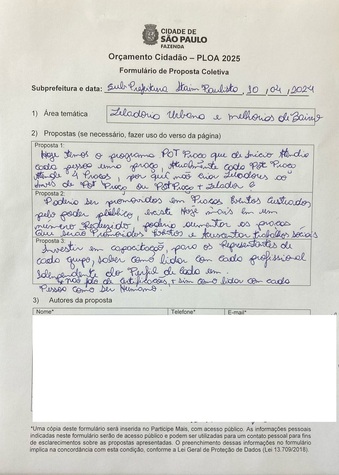 CIDADE DE
SÃO PAULO
FAZENDA
Orçamento Cidadão – PLOA 2025
Formulário de Proposta Coletiva
Subprefeitura e data: Sub Prefeitura Itaim Paulista, 10/04/2024
1) Área temática
Zeladoria Urbana e melhorias de Bairro
2) Propostas (se necessário, fazer uso do verso da página)
Proposta 1:
Hoje temos o programa POT Praça que de início Atendia
cada pessoa em uma praça, Atualmente cada POT Praça
Atende 4 Praças, por que não criar zeladores ao
invés de POT Praça, ou POT Praça + zelador e
Proposta 2:
Poderia ser promovidos em Praças Eventos custeados
pelo poder público, existe Hoje mais em um
número Reduzido, poderia aumentar as praças
que serão Promovidos Eventos e Aumentar trabalhos sociais
Proposta 3:
Investir em capacitação, para os Representantes
de cada grupo, saber como lidar com cada profissional
Independente do Perfil de cada um.
e não só de certificações, e sim como lidar com cada
Pessoa como ser Humano.
3) Autores da proposta
Nome* Telefone* E-mail*
*Uma cópia deste formulário será inserida no Participe Mais, com acesso público. As informações pessoais
indicadas neste formulário serão de acesso público e podem ser utilizadas para um contato pessoal para fins
de esclarecimentos sobre as propostas. O preenchimento dessas informações no formulário
implica na concordância com esta condição, conforme a Lei Geral de Proteção de Dados (Lei 13.709/2018).